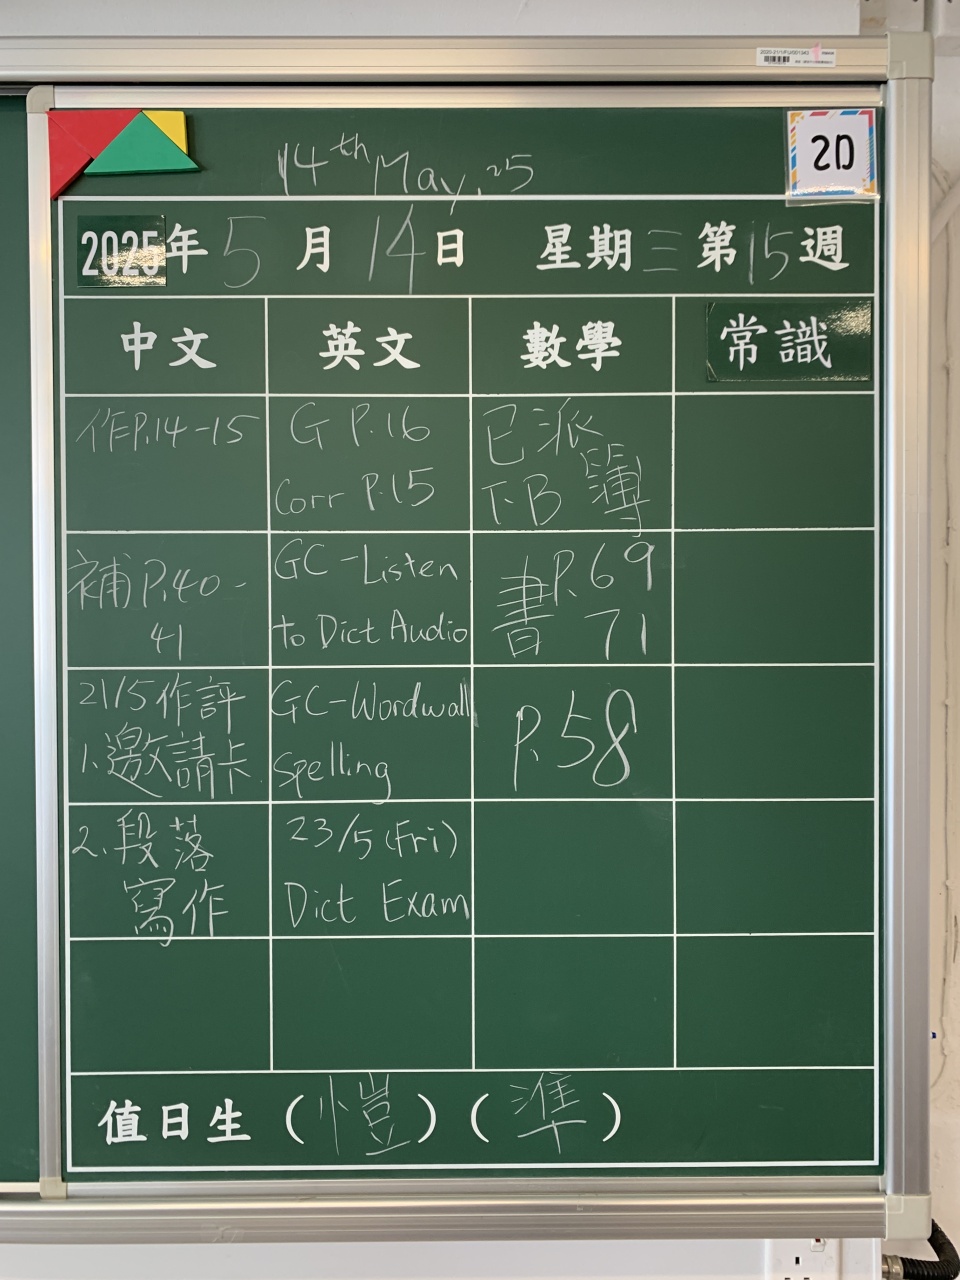 2020-21/1/FU/001343
2D
14th May, 25
2025年5月14日 星期三第15週
中文 英文 數學 常識
作P.14-15
G P.16
Corr P.15
已派
下B 簿
補P.40-
41
GC-Listen
to Dict Audio
書P.69
71
21/5作評
1.邀請卡
GC-Wordwall
Spelling
P.58
2.段落
寫作
23/5(Fri)
Dict Exam
值日生(愷)(準)